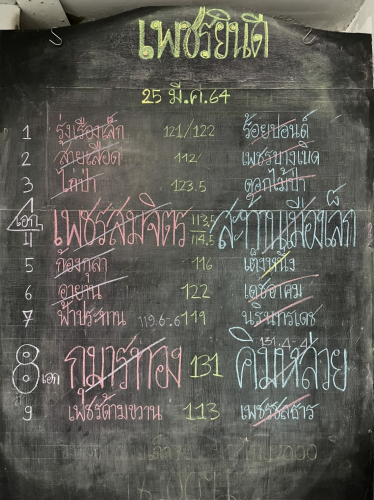 เพชรยินดี
25 มี.ค.64
1 รุ่งเรืองเล็ก 121/122 ร้อยปอนด์
2 สายเลือด 112 เพชรบางเนิด
3 ไก่ป่า 123.5 ดอกไม้ป่า
4 เอก เพชรสมจิตร 113.5 114.5 สะท้านเมืองเล็ก
5 ก้องกุลา 116
6 อายาน 122 เดชอาคม
7 ฟ้าประทาน 119.6-6 119 นรินทรเดช
8 เอก กุมารทอง 131 131.4-4 คิมหล่วย
9 เพชรด้ามขวาน 113 เพชรชลธาร